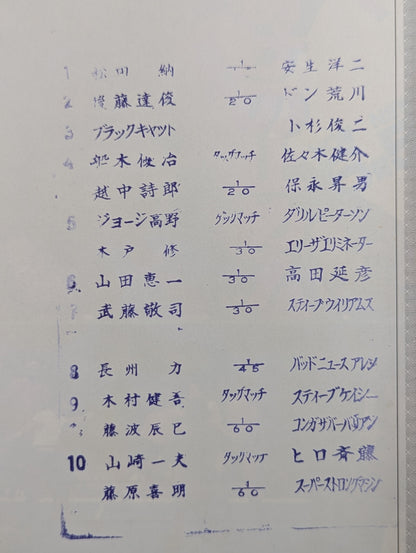 1 松田 納 1/ 安生洋二
2 後藤達俊 1/20 ドン荒川
3 ブラックキャット 小杉俊二
4 船木優治 タッグマッチ 佐々木健介
越中詩郎 1/20 保永昇男
5 ジョージ高野 タッグマッチ ダリルピーターソン
木戸 修 1/30 エリーザエリミネーター
6 山田恵一 1/30 高田延彦
7 武藤敬司 1/30 スティーブウィリアムス
8 長州 力 1/45 バッドニュースアレン
9 木村健吾 タッグマッチ スティーブケイシー
藤波辰巳 1/60 コンガザバーバリアン
10 山崎一夫 タッグマッチ ヒロ斉藤
藤原喜明 1/60 スーパーストロングマシン